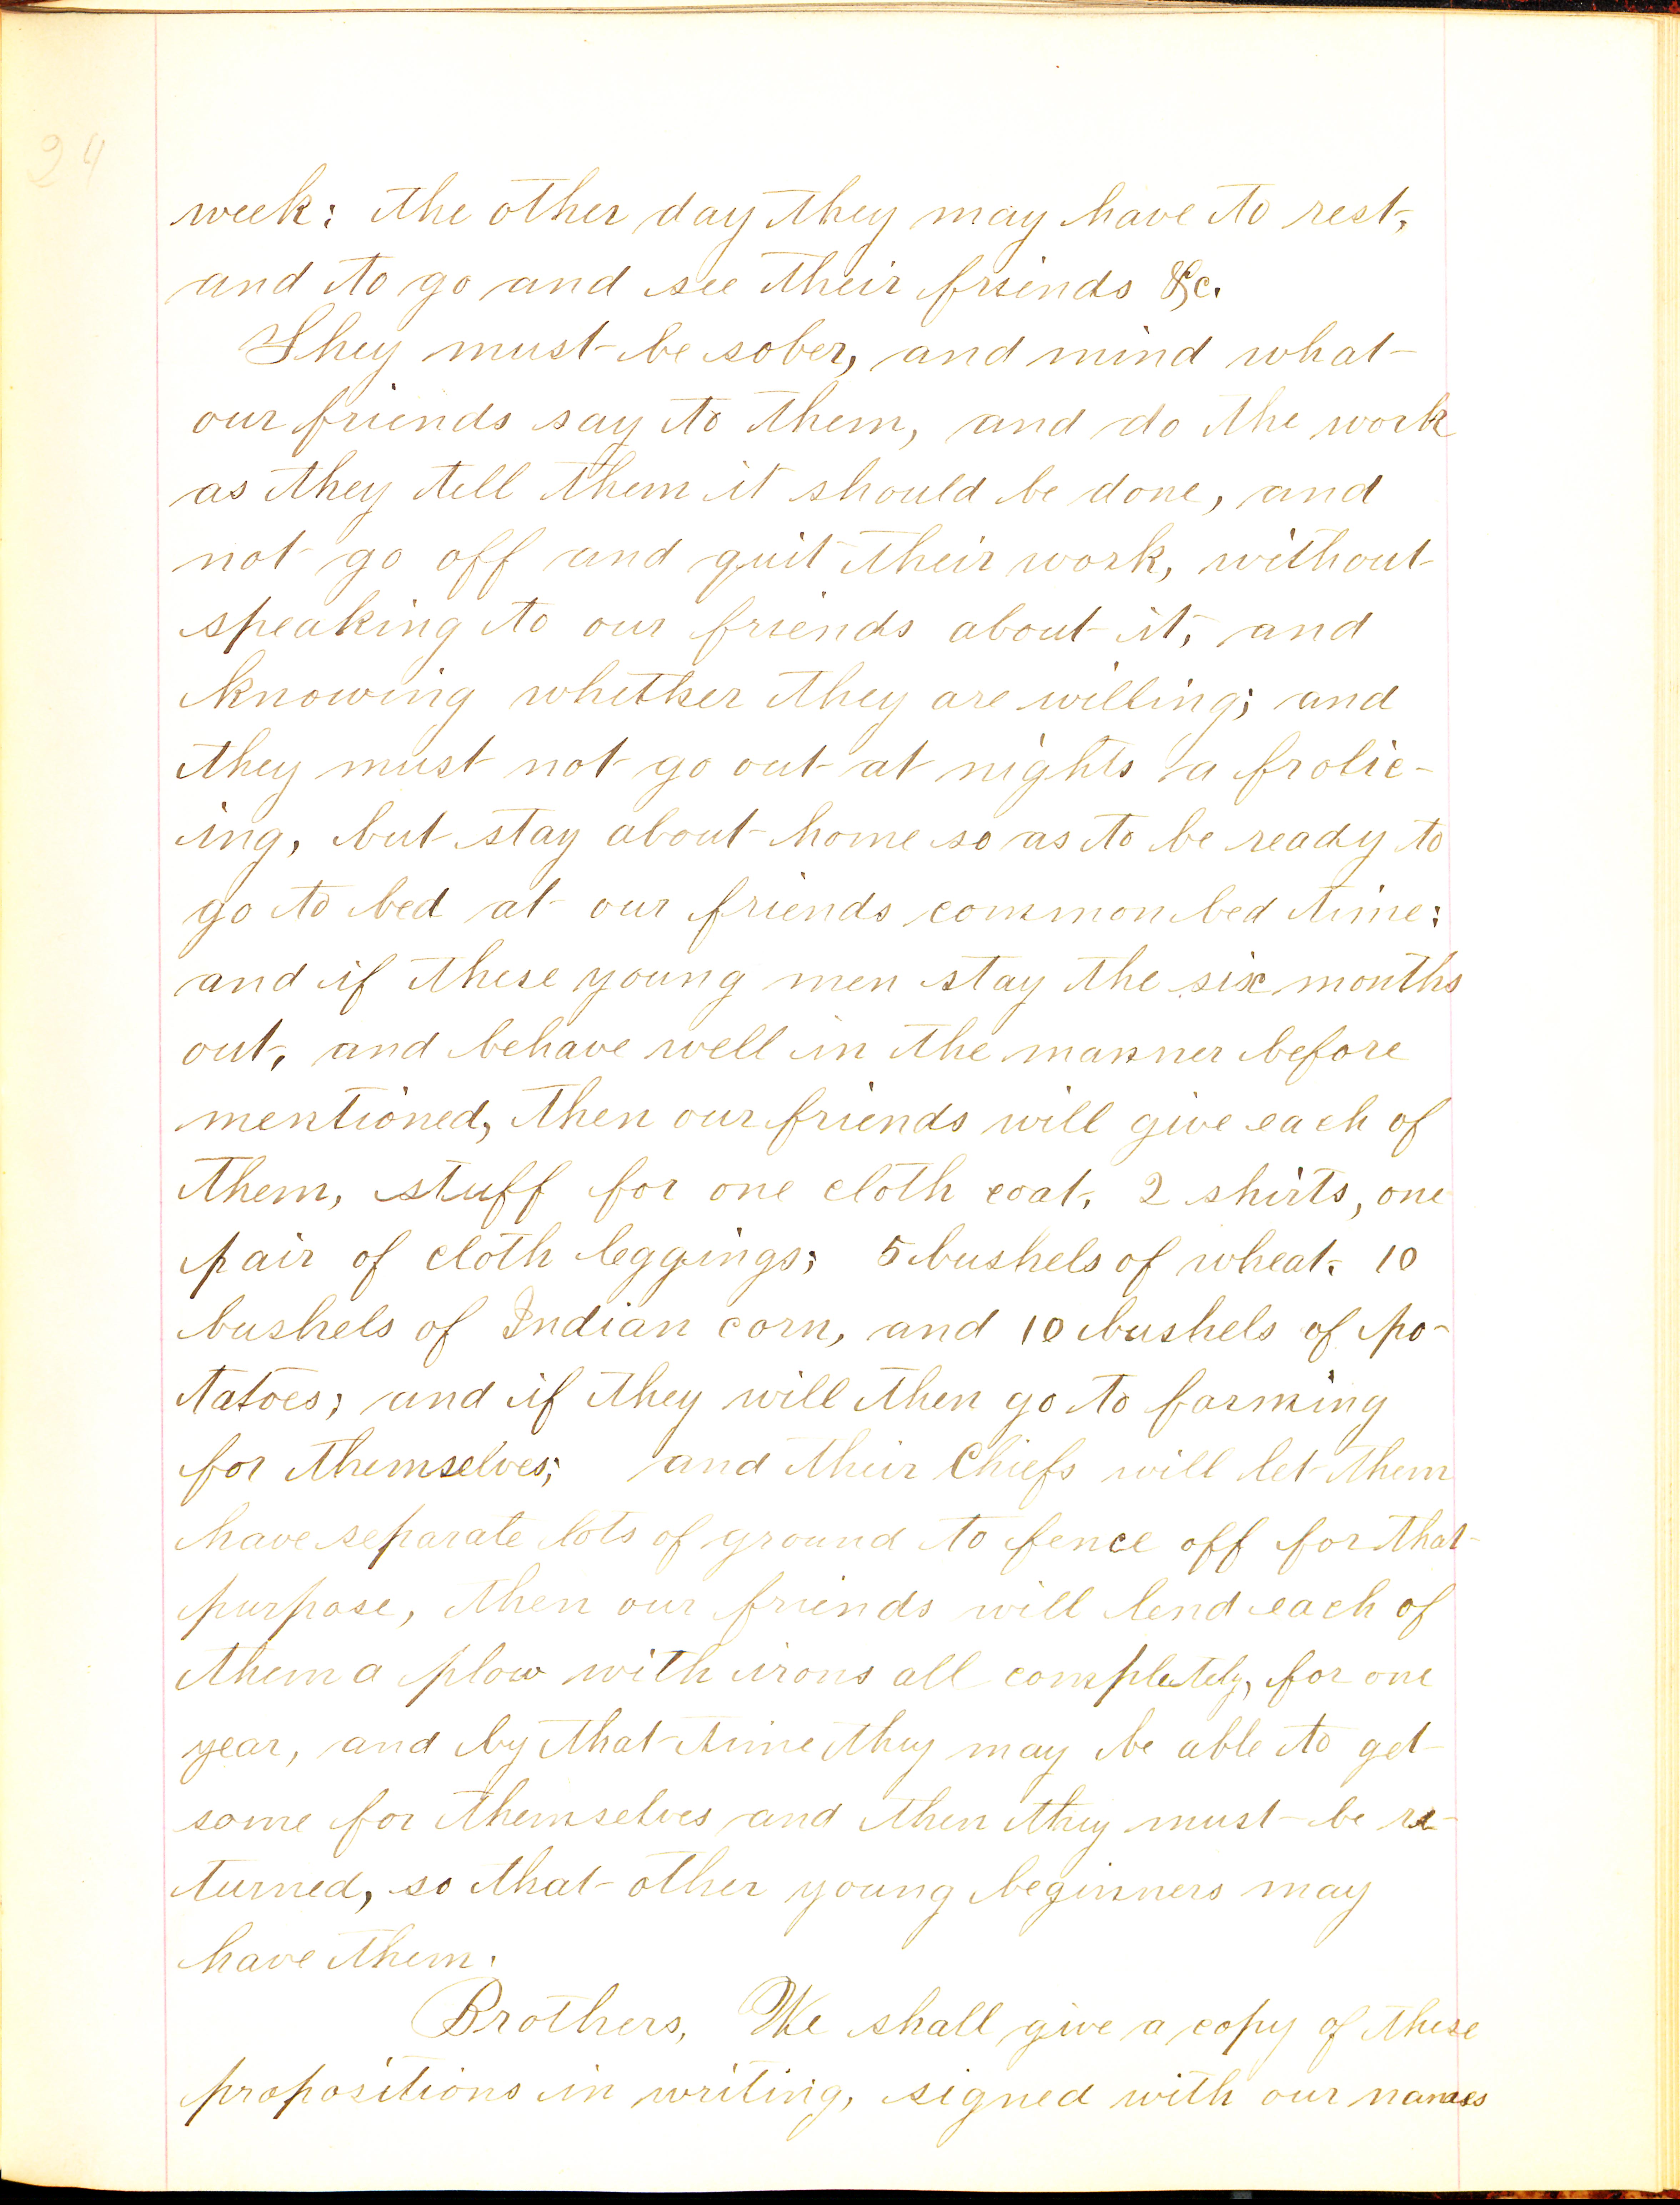 24
week: the other day they may have to rest,
and to go and see their friends &c.
They must be sober, and mind what
our friends say to them, and do the work
as they tell them it should be done, and
not go off and quit their work, without
speaking to our friends about it, and
knowing whether they are willing; and
they must not go out at nights a frolic-
ing, but stay about home so as to be ready to
go to bed at our friends common bed time:
and if these young men stay the six months
out, and behave well in the manner before
mentioned, then our friends will give each of
them, stuff for one cloth coat, 2 shirts, one
pair of cloth leggings; 5 bushels of wheat, 10
bushels of Indian corn, and 10 bushels of po-
tatoes; and if they will then go to farming
for themselves; and their Chiefs will let them
have separate lots of ground to fence off for that
purpose, then our friends will lend each of
them a plow with irons all completely, for one
year, and by that time they may be able to get
some for themselves and then they must be re-
turned, so that other young beginners may
have them.
Brothers, We shall give a copy of these
propositions in writing, signed with our names